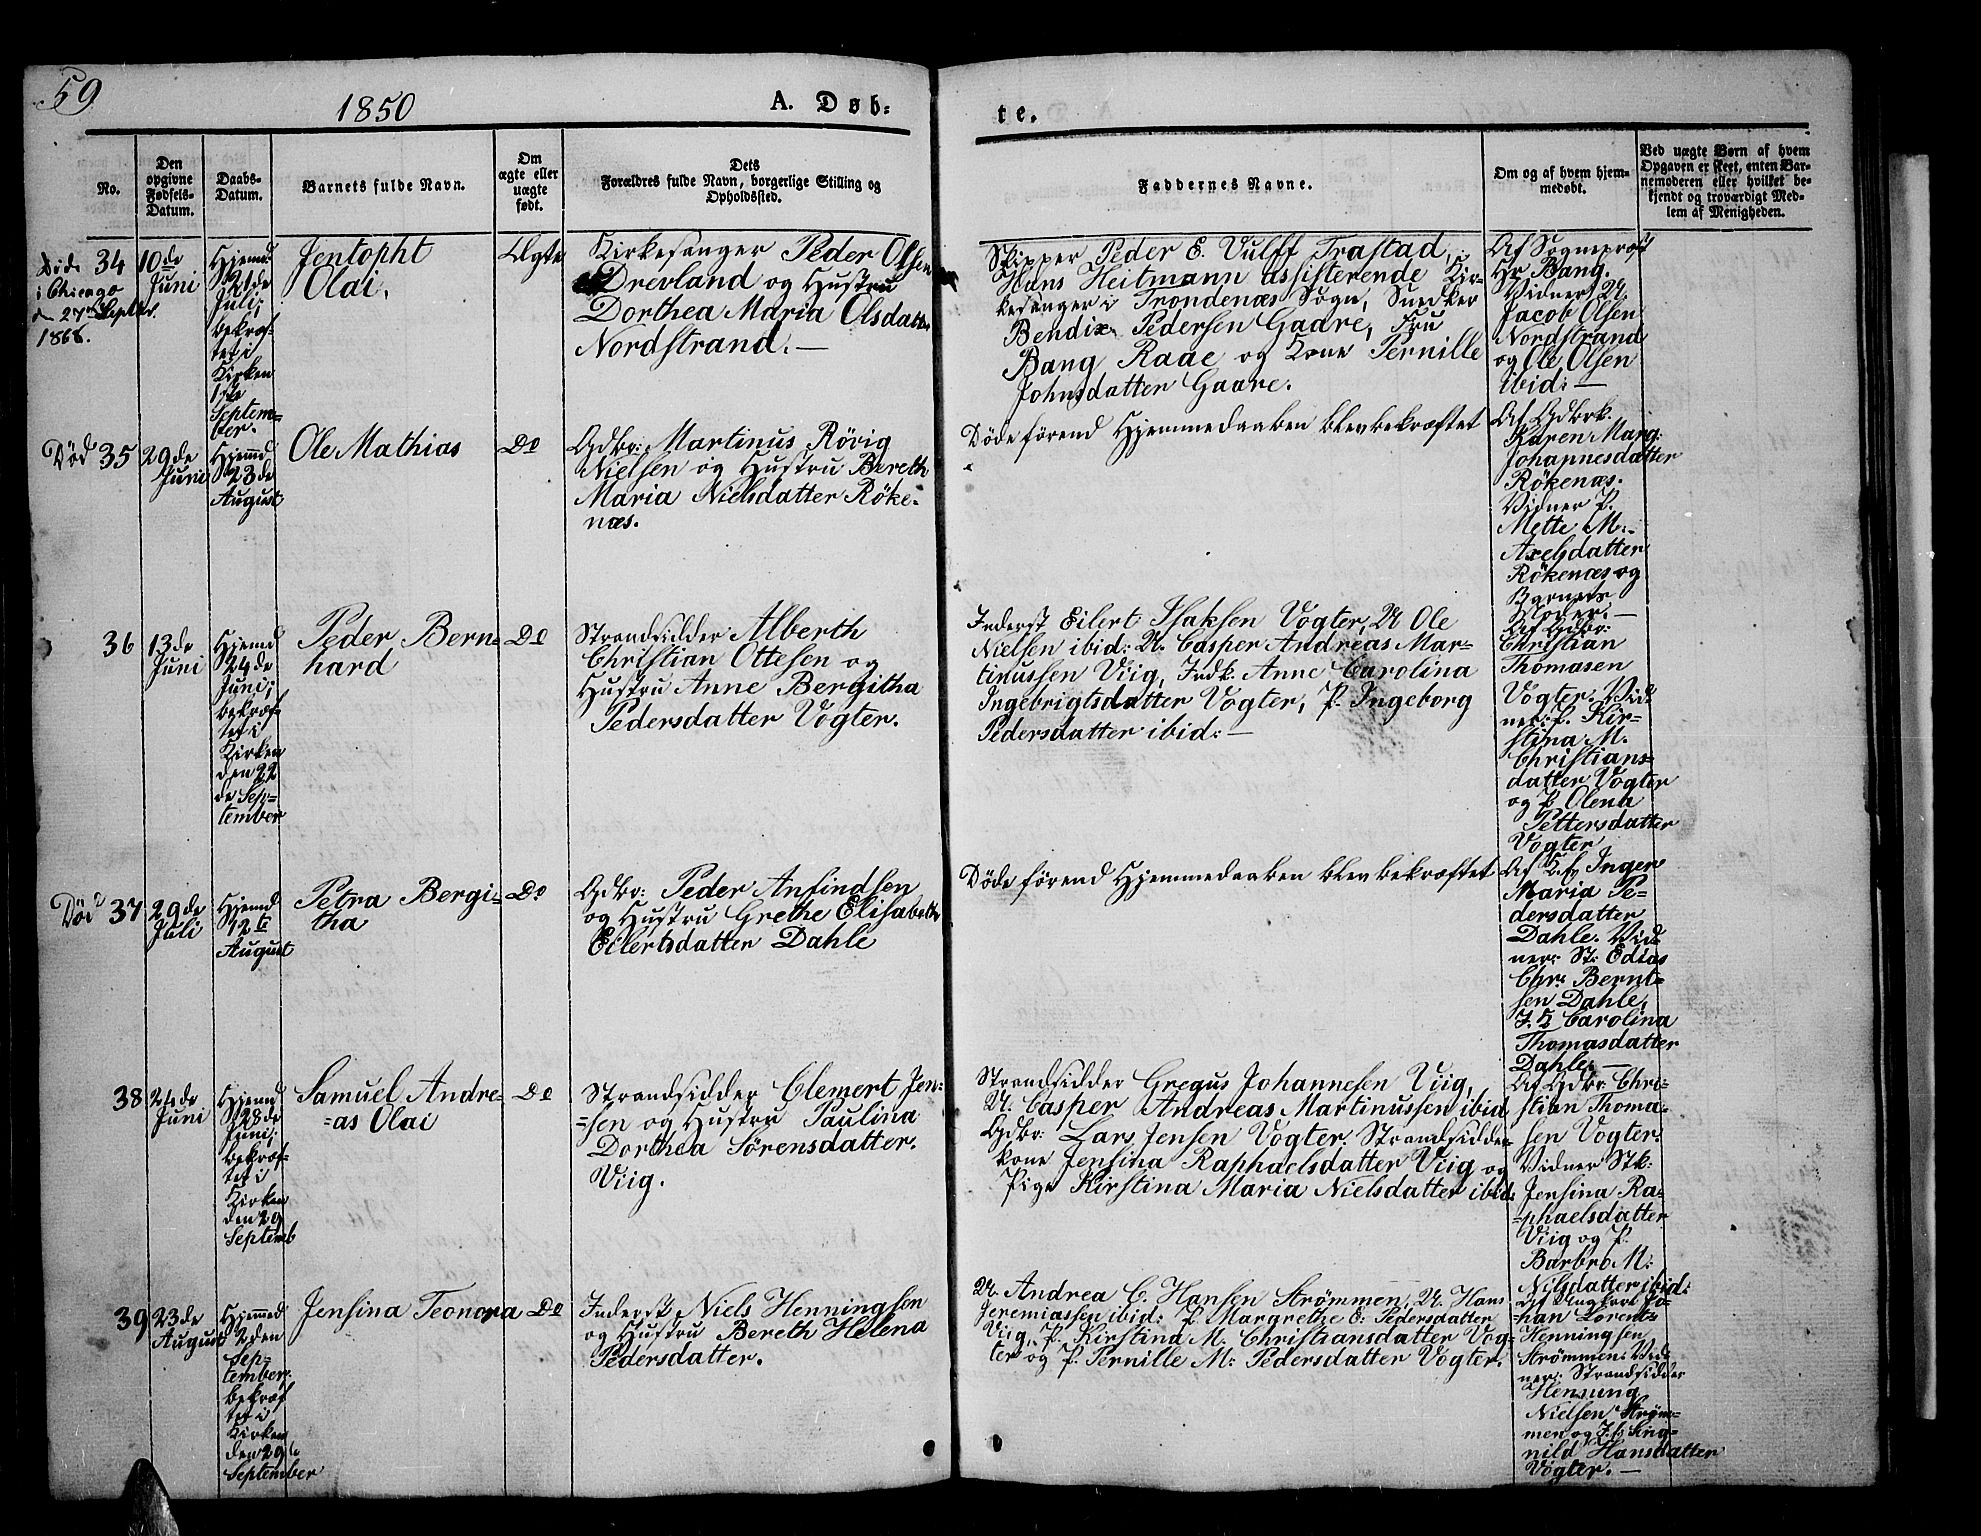 59
1850
A. Døb-
te.
No.
Den
opgivne
Fødsels-
Datum.
Daabs-
Datum.
Barnets fulde Navn.
Om
ægte eller
uægte
født.
Dets
Forældres fulde Navn, borgerlige Stilling og
Opholdssted.
Faddernes Navne.
Om og af hvem hjem-
medøbt.
Ved uægte Børn af hvem
Opgaven er skeet, enten Bar-
nemoderen eller hvilket be-
kjendt og troværdigt Med-
lem af Menigheden.
Død
i Chicago
27de Septbr.
1868.
34
10de
Juni
Hjemd
21de
Juli;
bekræf-
tet i
Kirken
1ste
Septem-
ber.
Jentopht
Olai.
Ægte
Kirkesanger Peder Olsen
Drevland og Hustru
Dorthea Maria Olsdatter
Nordstrand. —
Skipper Peder E. Vulff Trastad,
Hans Heitmann assisterende Kir-
kesanger i Trondenæs Sogn, Snedker
Bendix Pedersen Gaare, Fru
Bang Raae og Kone Pernille
Johnsdatter Gaare.
Af Sognepræst
Hr. Bang.
Vidner U.
Jacob Olsen
Nordstrand
og Ole Olsen
ibid: —
Død 35
29de
Juni
Hjemd
23de
August
Ole Mathias
Do
Gdbr: Martinus Rövig
Nielsen og Hustru Bereth
Maria Nielsdatter Röke-
næs.
Döde förend Hjemmedaaben blev bekræftet
Af Gdbrk.
Karen Marg:
Johannesdatter
Rökenæs.
Vidner P.
Mette M.
Axelsdatter
Rökenæs og
Barnets
Moder. —
36
13de
Juni
Hjemd
24de
Juni;
bekræf-
tet i
Kirken
den 22
de Sep-
tember
Peder Bern-
hard
Do
Strandsidder Alberth
Christian Ottesen og
Hustru Anne Bergitha
Pedersdatter Vogter.
Inderst Eilert Isaksen Vogter, U. Ole
Nielsen ibid: U. Casper Andreas Mar-
tinussen Viig, Indk. Anne Carolina
Ingebrigtsdatter Vogter, P. Ingeborg
Pedersdatter ibid: —
Af Gdbr:
Christian
Thomasen
Vogter. Vid-
ner: P. Kir-
stina M.
Christians-
datter Vogter
og P. Olena
Pettersdatter
Vogter
Död 37
29de
Juli
Hjemd
12te
August
Petra Bergi-
tha
Do
Gdbr: Peder Anfindsen
og Hustru Grethe Elisabeth
Eilertsdatter Dahle
Döde förend Hjemmedaaben blev bekræftet
Inger
Maria Pe-
dersdatter
Dahle. Vid-
ner: St: Edias
Chr: Bernt-
sen Dahle,
Carolina
Thomasdatter
Dahle. —
38
24de
Juni
Hjemd
28de
Juni;
bekræf-
tet i
Kirken
den 29
Septemb
Samuel Andre-
=as Olai
Do
Strandsidder Clemert Jen-
=sen og Hustru Paulina
Dorthea Sörensdatter.
Viig.
Strandsidder Gregus Johannesen Viig,
U. Casper Andreas Martinussen ibid
Gdbr: Lars Jensen Vogter. Strandsidder-
kone Jensina Raphaelsdatter Viig og
Pige Kirstina Maria Nielsdatter ibid:
Af Gdbr: Chri-
stian Thoma-
sen Vogter.
Vidner Stk:
Jensina Ra-
=phaelsdatter
Viig og P.
Barbro M:
Nilsdatter ibid:
39
23de
August
Hjemmed
2den
Sep-
tember.
bekræf
tet i
Kirken
den 29de
September
Jensina Teonora
Do
Inderst Niels Henningsen
og Hustru Bereth Helena
Pedersdatter.
U. Andrea C. Hansen Strömmen, U. Hans
Jeremiassen ibid: P. Margrethe E: Pedersdatter
Viig, P. Kirstina M. Christiansdatter Vog-
ter og P. Pernille M: Pedersdatter Vogter.
Af Ungkarl Jo-
han Lorents
Henningsen
Strömmen. Vid-
ner: Strandsidder
Hensung
Nielsen Ström-
men og
nild Hansdatter
Vogter. —